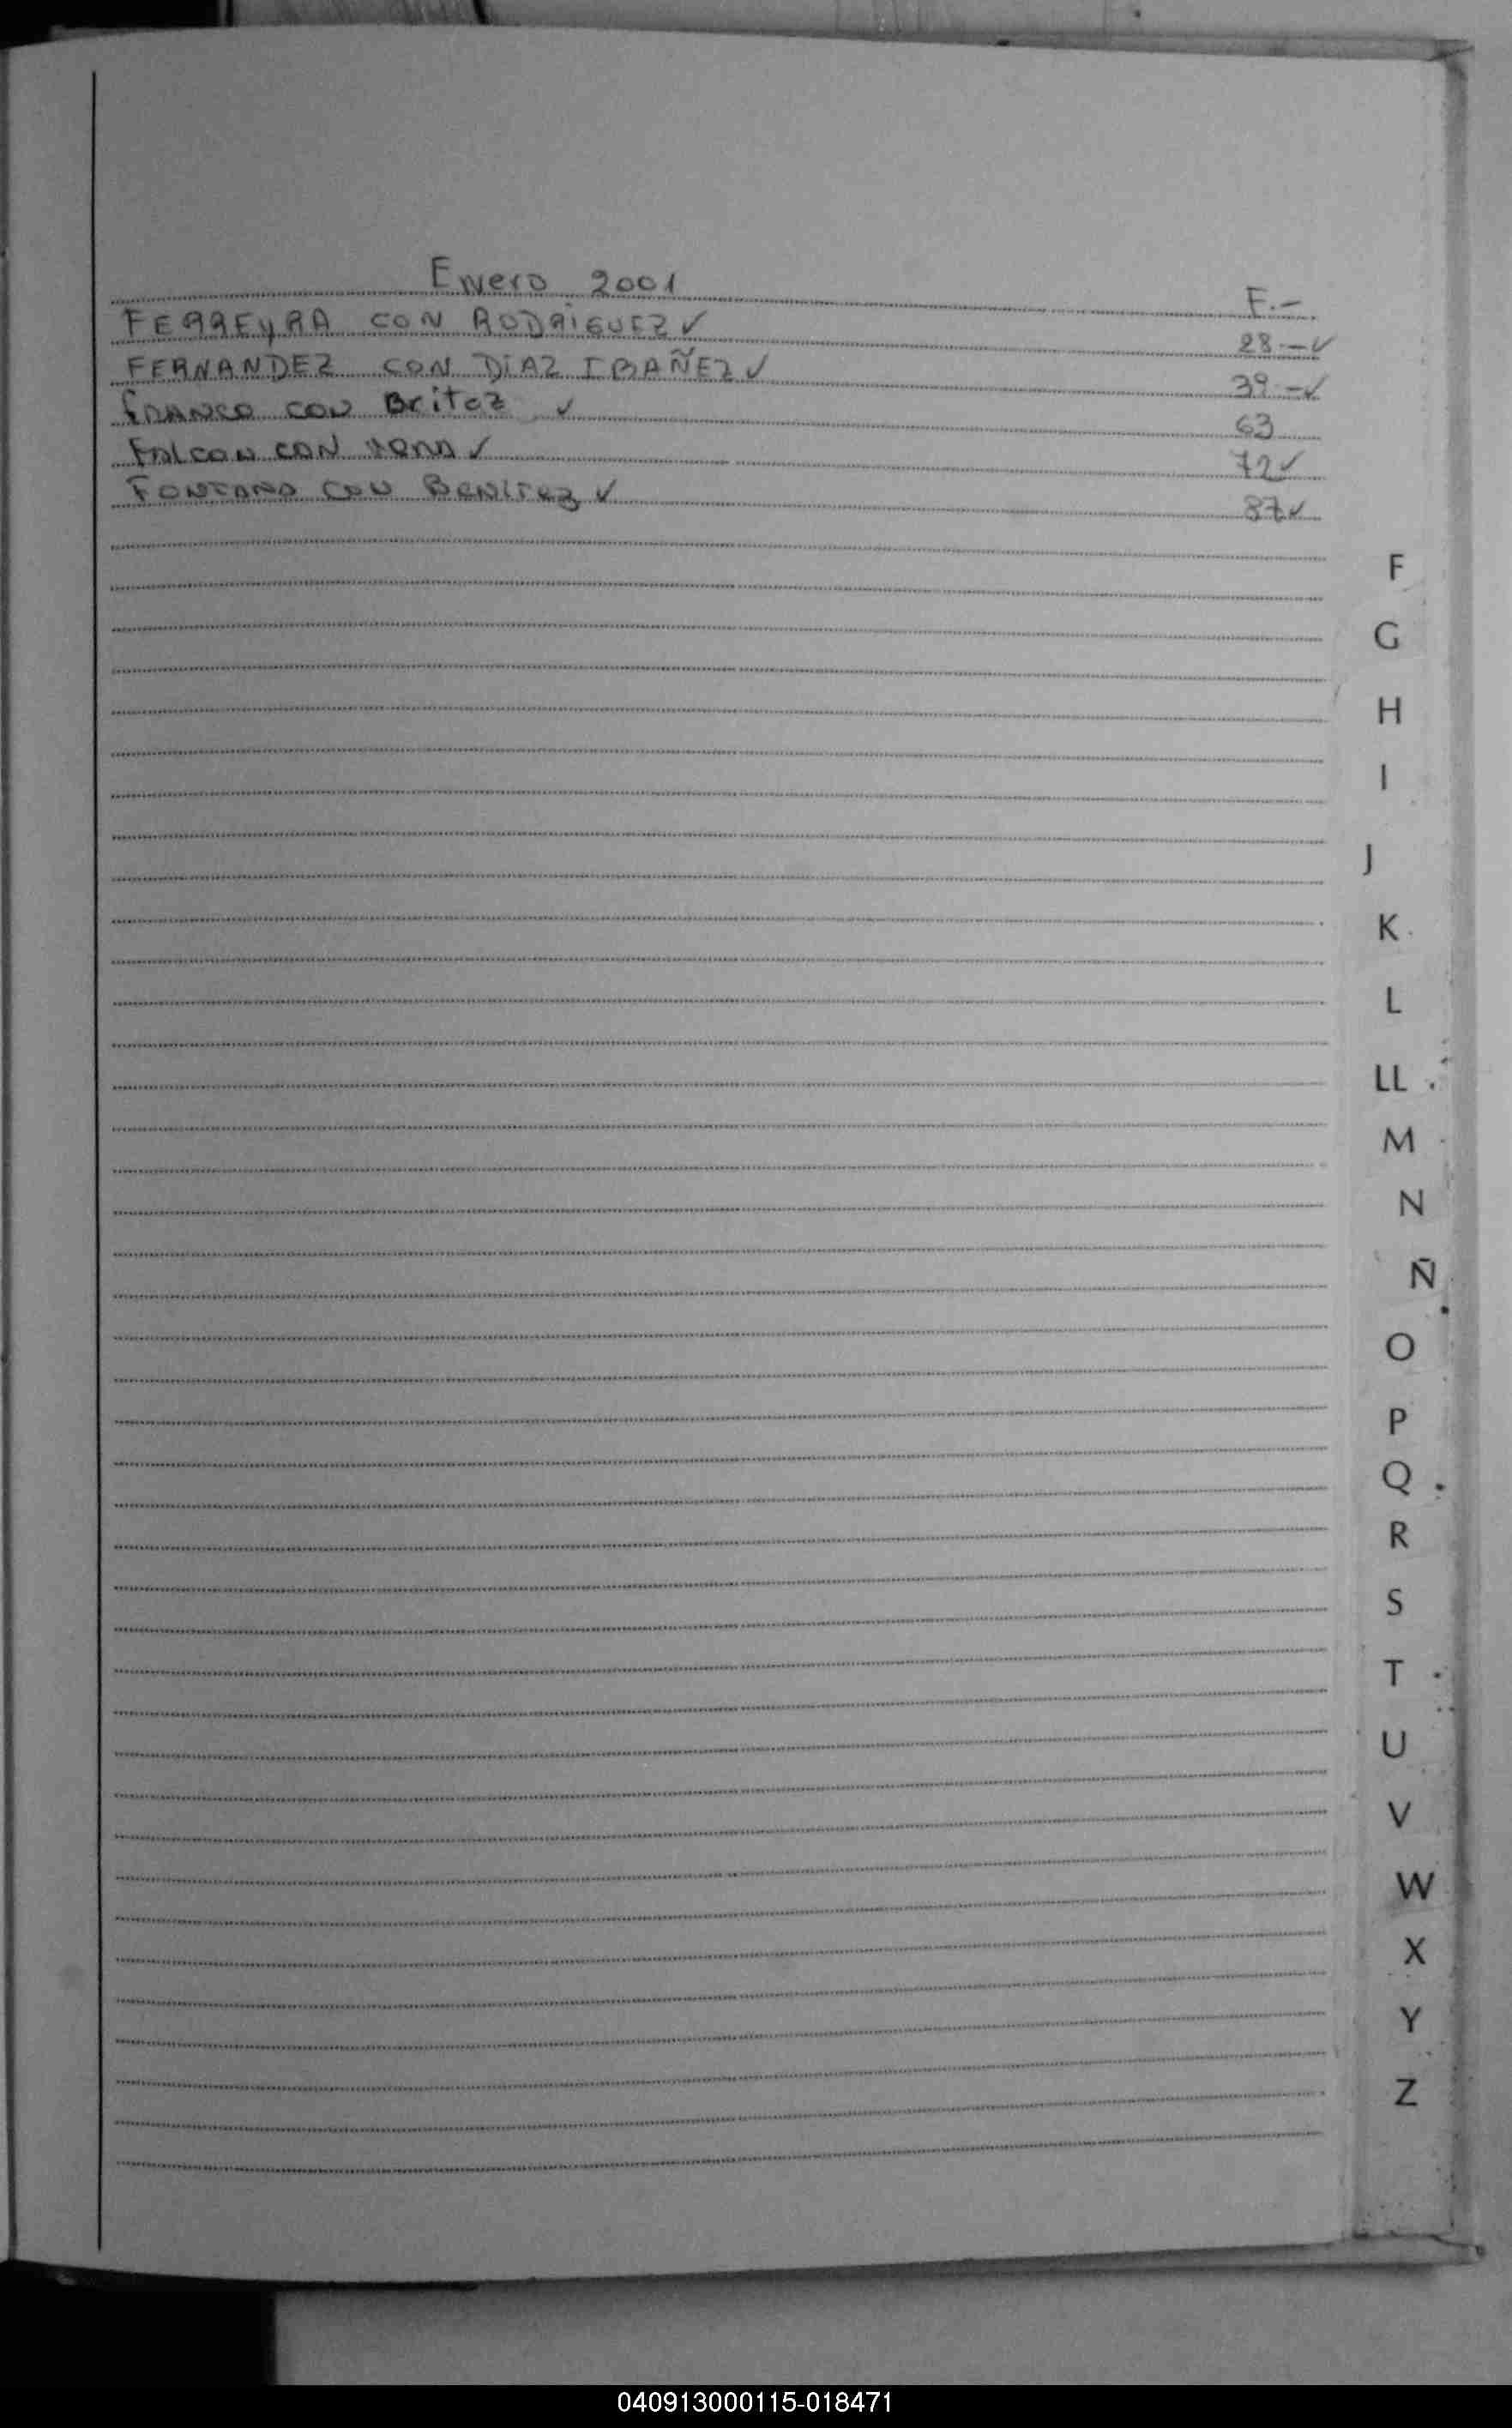 Enero 2001
F.-
FERREYRA CON RODRIGUEZ ✓ 28-✓
FERNANDEZ CON DIAZ IBAÑEZ ✓ 39-✓
Franco con Britez ✓ 63
Falcon CON ✓ 72✓
Fontana con Benitez ✓ 87✓
F
G
H
I
J
K
L
LL
M
N
Ñ
O
P
Q
R
S
T
U
V
W
X
Y
Z
040913000115-018471